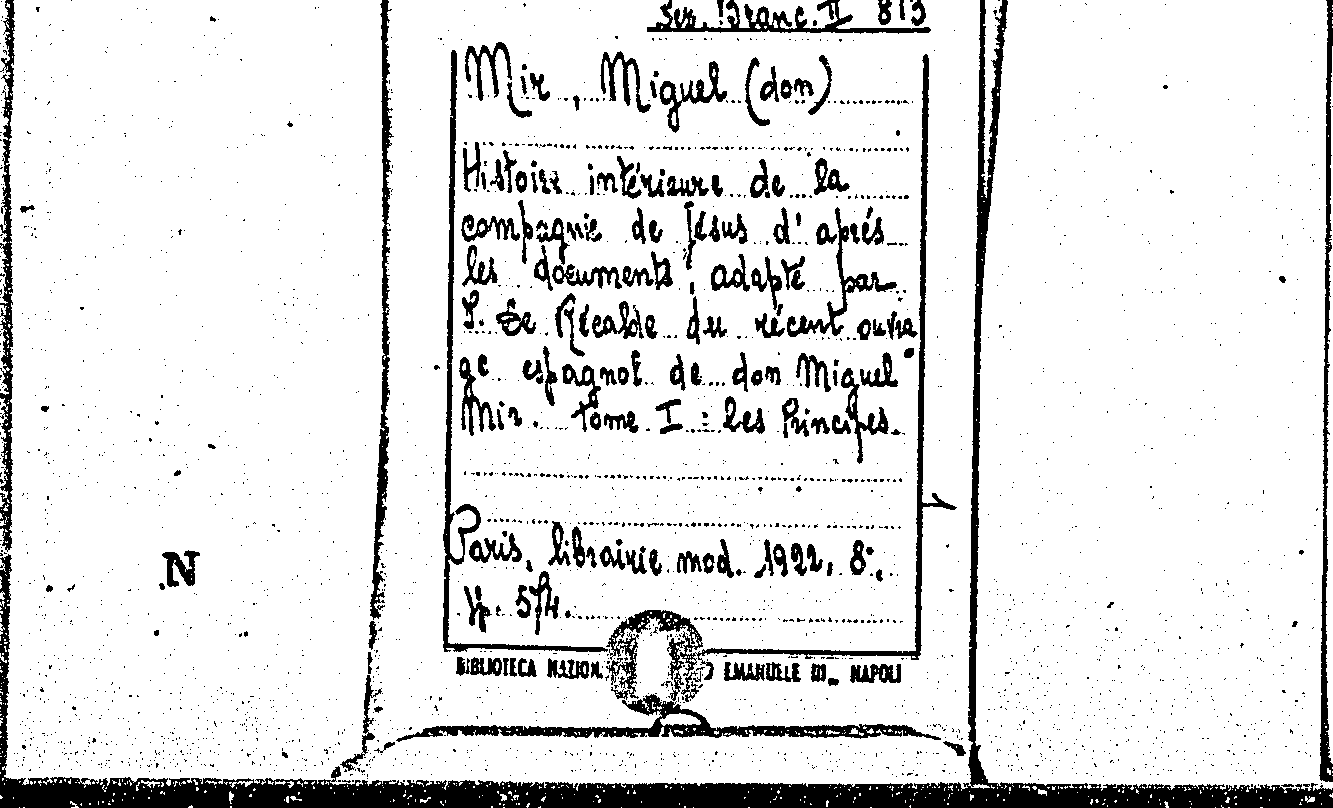 Branc. II 813
Mir, Miguel (don)
Histoire intérieure de la
compagnie de Jésus d'aprés
les documents, adapté par
I. de Récalde du récent ouvra
ge espagnol de don Miguel
Mir. Tome I : Les Principes.
Paris, librairie mod. 1922, 8°,
pp. 574.
N
BIBLIOTECA NAZION. EMANUELE III_ NAPOLI